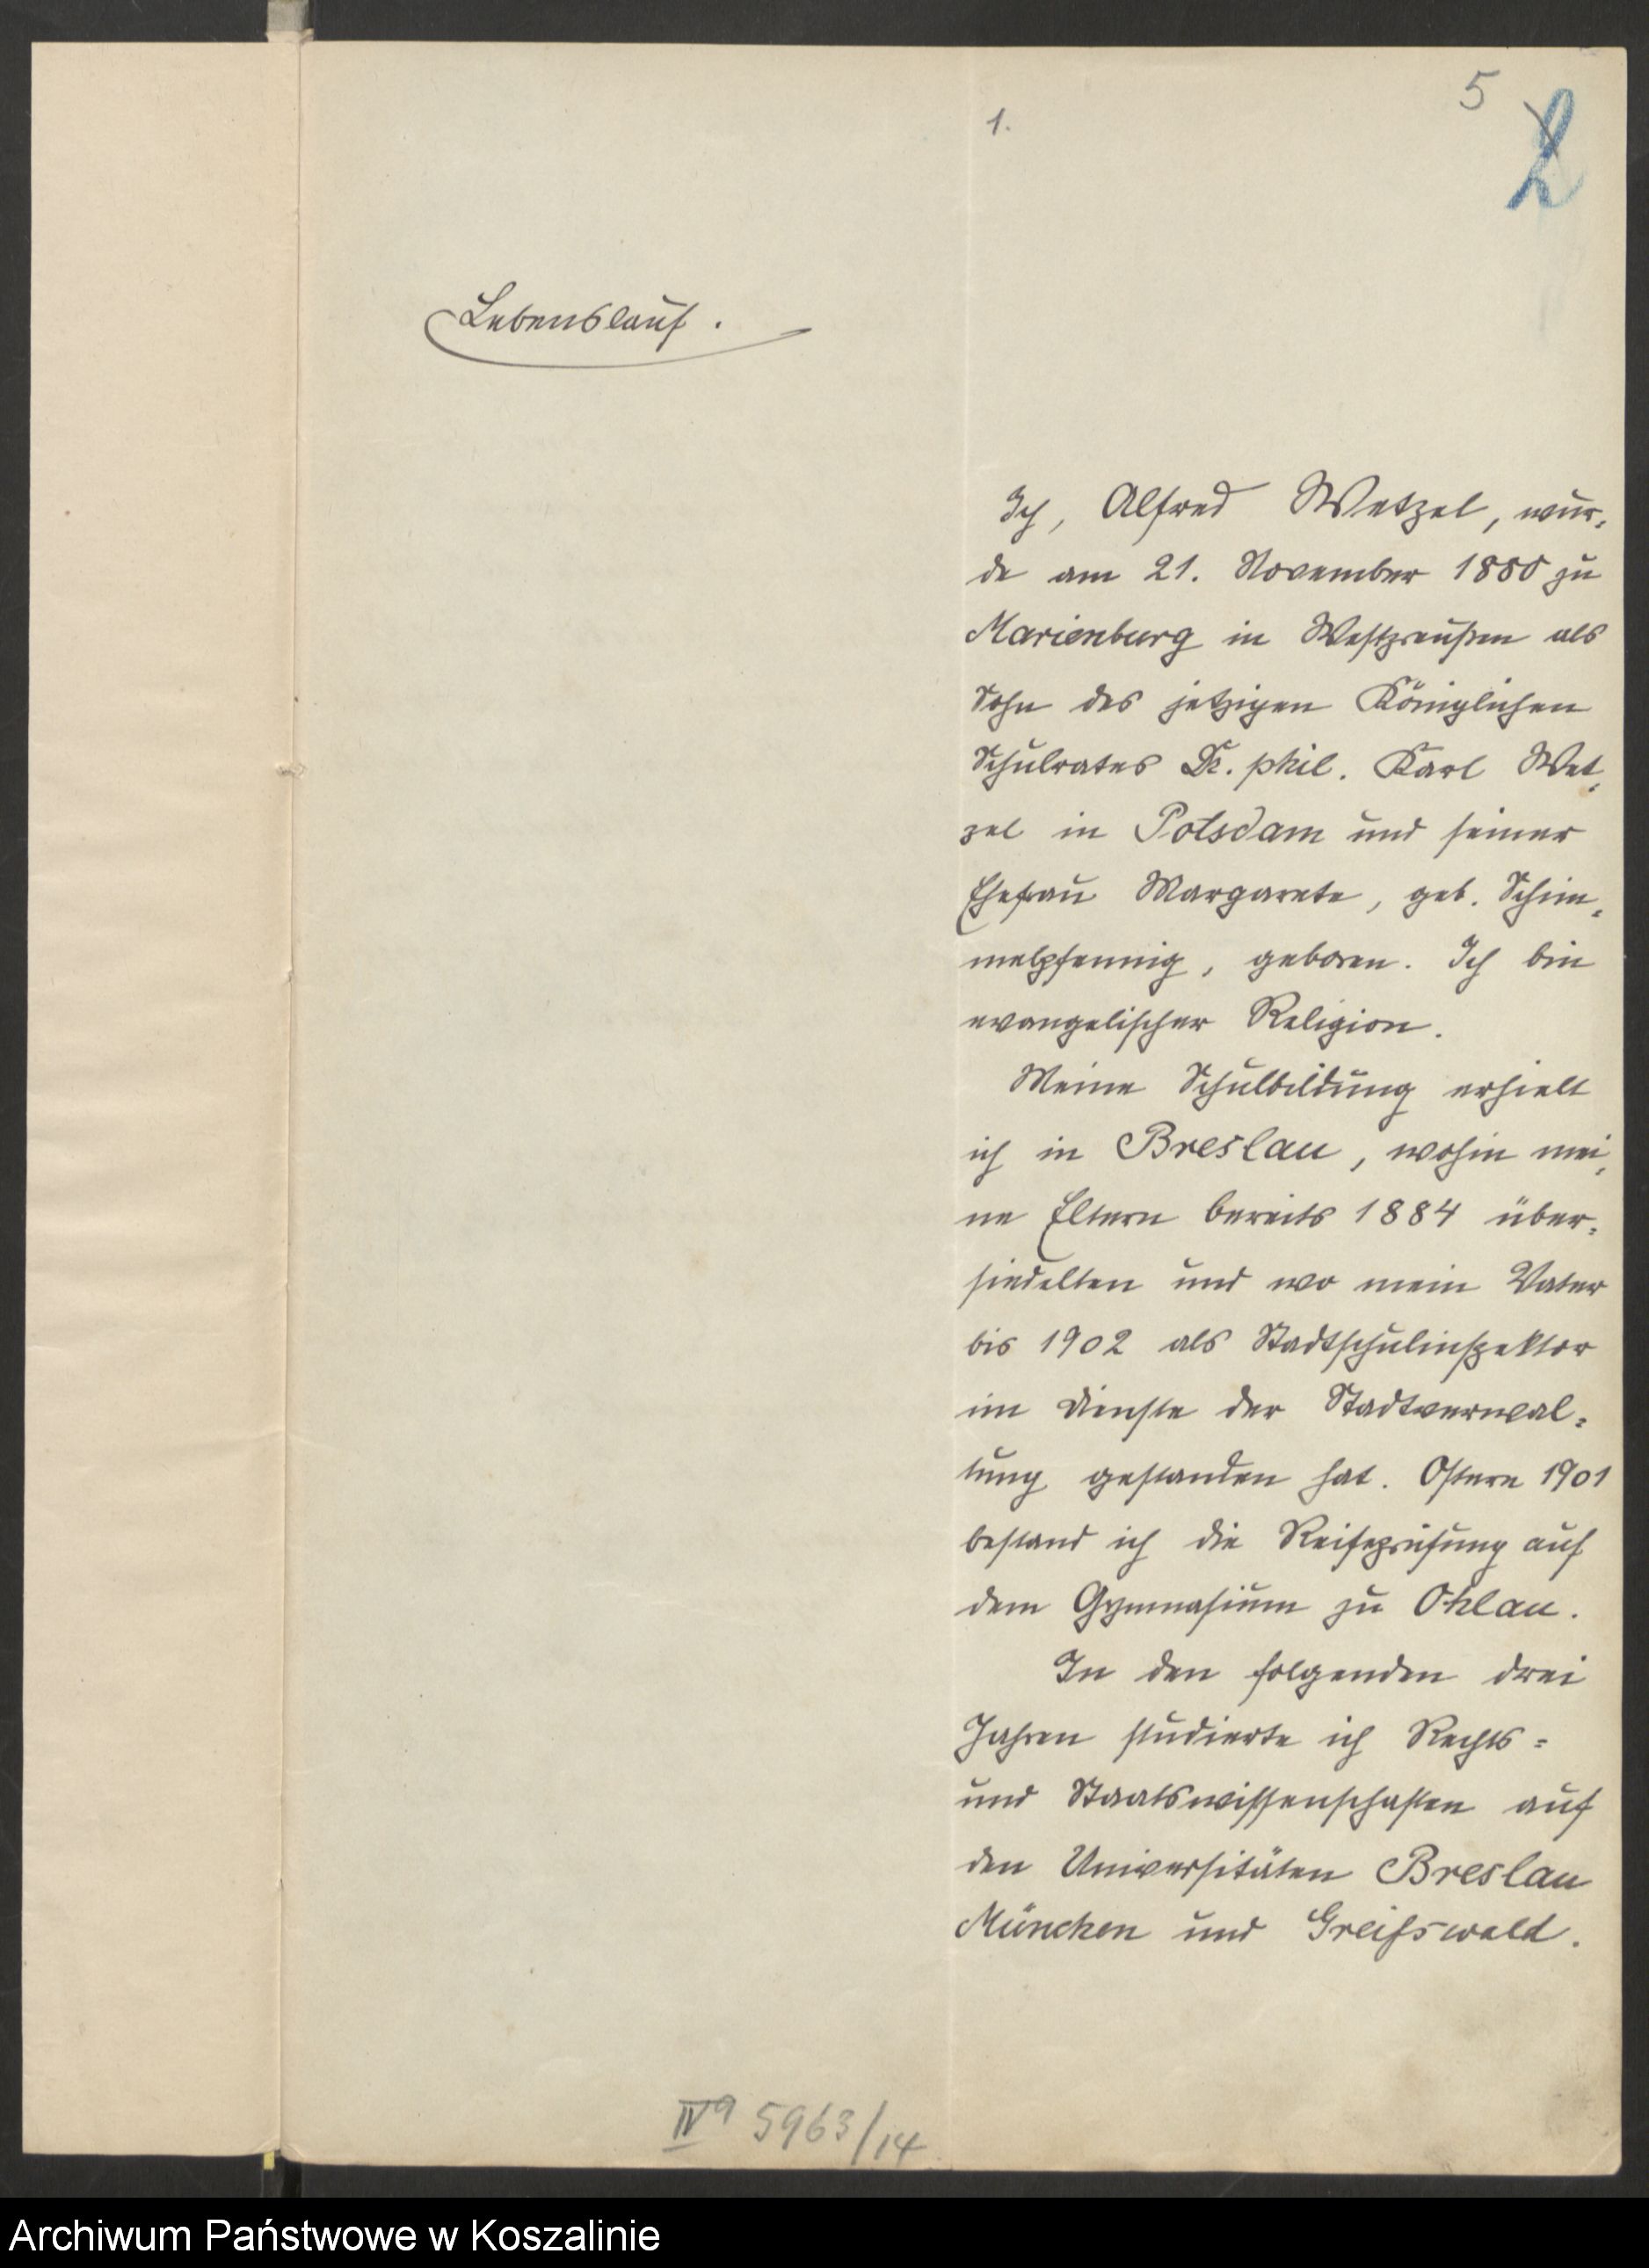 5
1.
2
Lebenslauf.
Ich, Alfred Wetzel, wur-
de am 21. November 1880 zu
Marienburg in Westpreußen als
Sohn des jetzigen Königlichen
Schulrates Dr. phil. Karl Wet-
zel in Potsdam und seiner
Ehefrau Margarete, geb. Schim-
melpfennig, geboren. Ich bin
evangelischer Religion.
Meine Schulbildung erhielt
ich in Breslau, wohin mei-
ne Eltern bereits 1884 über-
siedelten und wo mein Vater
bis 1902 als Stadtschulinspektor
im Dienste der Stadtverwal-
tung gestanden hat. Ostern 1901
bestand ich die Reifeprüfung auf
dem Gymnasium zu Ohlau.
In den folgenden drei
Jahren studierte ich Rechts-
und Staatswissenschaften auf
den Universitäten Breslau
München und Greifswald.
IVa 5963/14
Archiwum Państwowe w Koszalinie